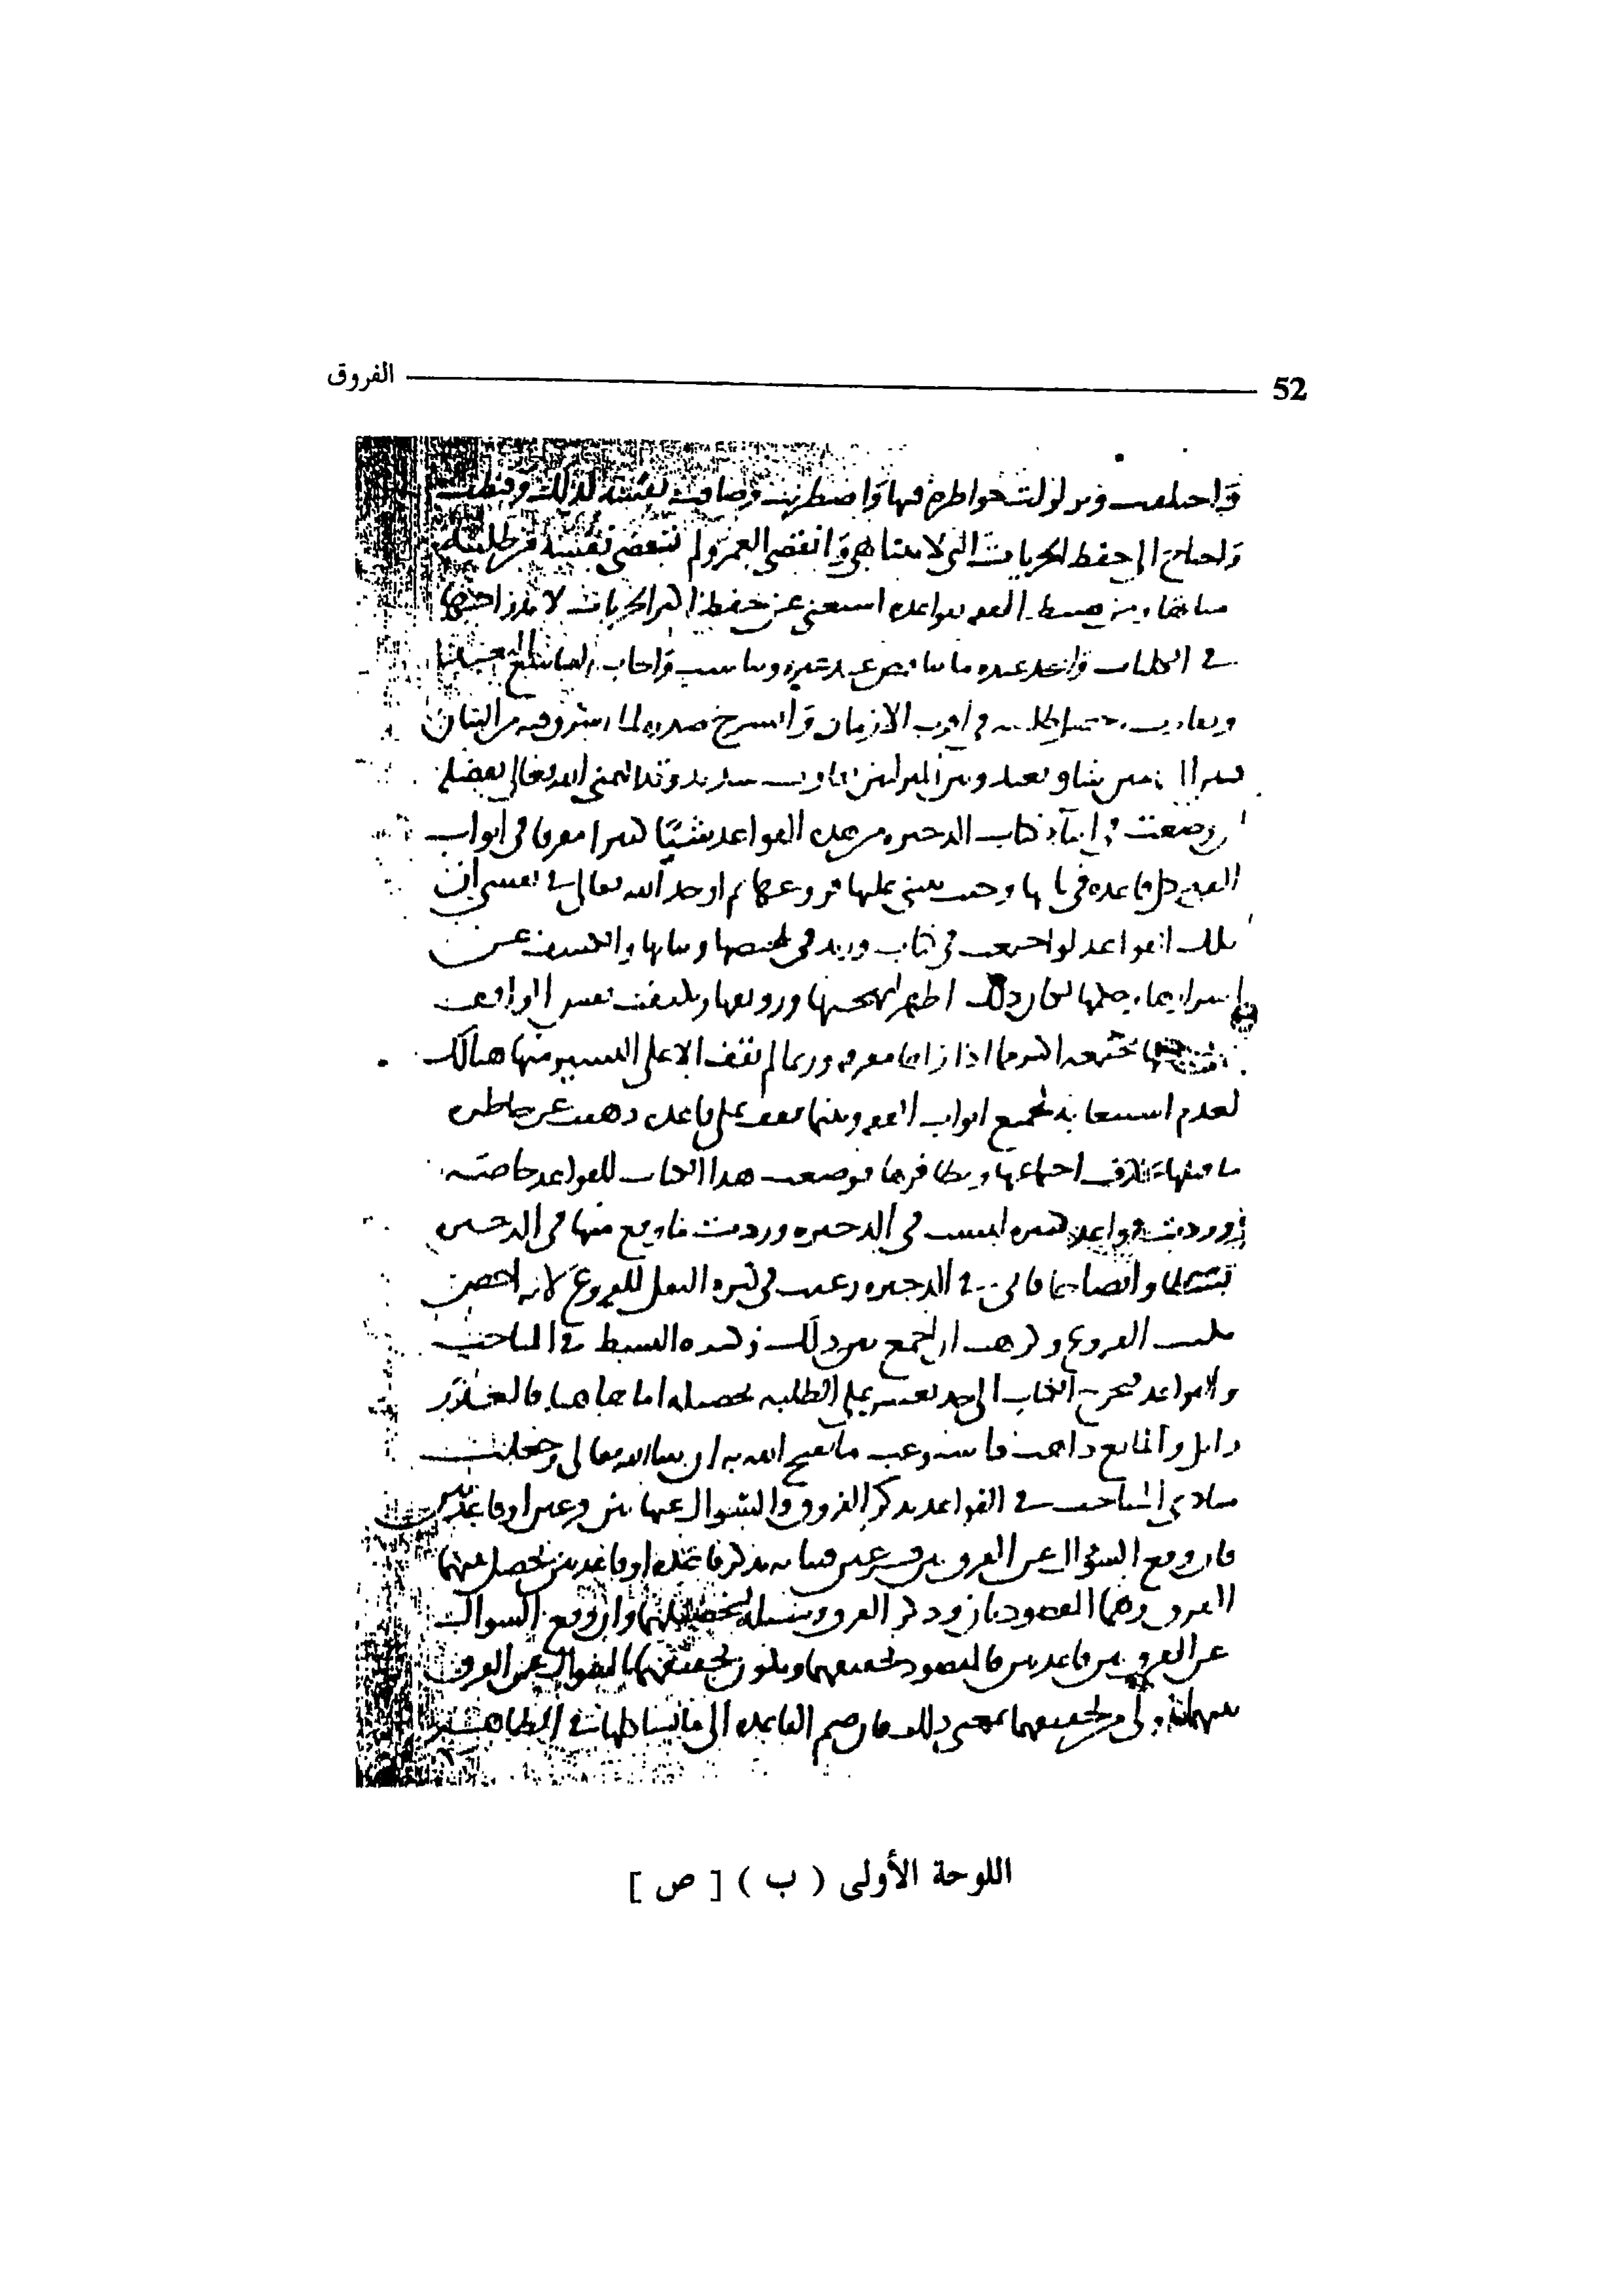 52 الفروق
واختلفت وتزلزلت خواطره فيها واضطربت وضاقت نفسه لذلك وقنطت
واحتاج الى حفظ الجزيات التي لا تتناهى وانقضى العمر ولم تقض نفسه من طلب
مناها ومن ضبط الفقه بقواعده استغنى عن حفظ اكثر الجزيات لاندراجها
في الكليات واتحد عنده ما تناقض عند غيره وتناسب واجاب الشاسع البعيد
وتقارب وحصل طلبته في اقرب الازمان وانشرح صدره لما اشرق فيه من البيان
فبين المقامين شاو بعيد وبين المنزلتين تفاوت شديد وقد الهمني الله تعالى بفضله
ان وضعت في اثناء كتاب الذخيره من هذه القواعد شيئا كثيرا مفرقا في ابواب
الفقه كل قاعده في بابها وحيث يبنى عليها فروعها ثم اوجد الله تعالى في نفسي ان
تلك القواعد لو اجتمعت في كتاب وزيد في تلخيصها وبيانها والكشف عن
اسرارها وحكمها لكان ذلك اظهر لبهجتها ورونقها وتكيفت نفس الواقف
عليها بها مجتمعه اكثر مما اذا راها مفرقه وربما لم يقف الا على اليسير منها هنالك
لعدم استيعابه لجميع ابواب الفقه واينما يقف على قاعده ذهب عن خاطره
ما قبلها بخلاف اجتماعها وتظافرها فوضعت هذا الكتاب للقواعد خاصه
وزدت قواعد كثيره ليست في الذخيره وزدت ما وقع منها في الذخيره
بسطا وايضاحا فاني في الذخيره رغبت في كثره النقل للفروع لانه اخص
بكتب الفروع وكرهت ان اجمع بين ذلك وكثره البسط في المباحث
والقواعد فيخرج الكتاب الى حد يعسر على الطلبه تحصيله اما هنا فالعذر
زايل والمانع ذاهب فاستوعب ما يفتح الله به ان شا الله تعالى وجعلت
مبادي المباحث في القواعد بذكر الفروق والسؤال عنها بين فرعين او قاعدتين
فان وقع السؤال عن الفرق بين فرعين فبيانه بذكر قاعده او قاعدتين يحصل بهما
الفرق وهما المقصودتان وذكر الفرق وسيله لتحصيلهما وان وقع السؤال
عن الفرق بين قاعدتين فالمقصود تحقيقهما ويكون تحقيقهما بالسؤال عن الفرق
بينهما اولى من تحقيقهما بغير ذلك فان ضم القاعده الى ما يشاكلها في الظاهر
اللوحة الأولى ( ب ) [ ص ]